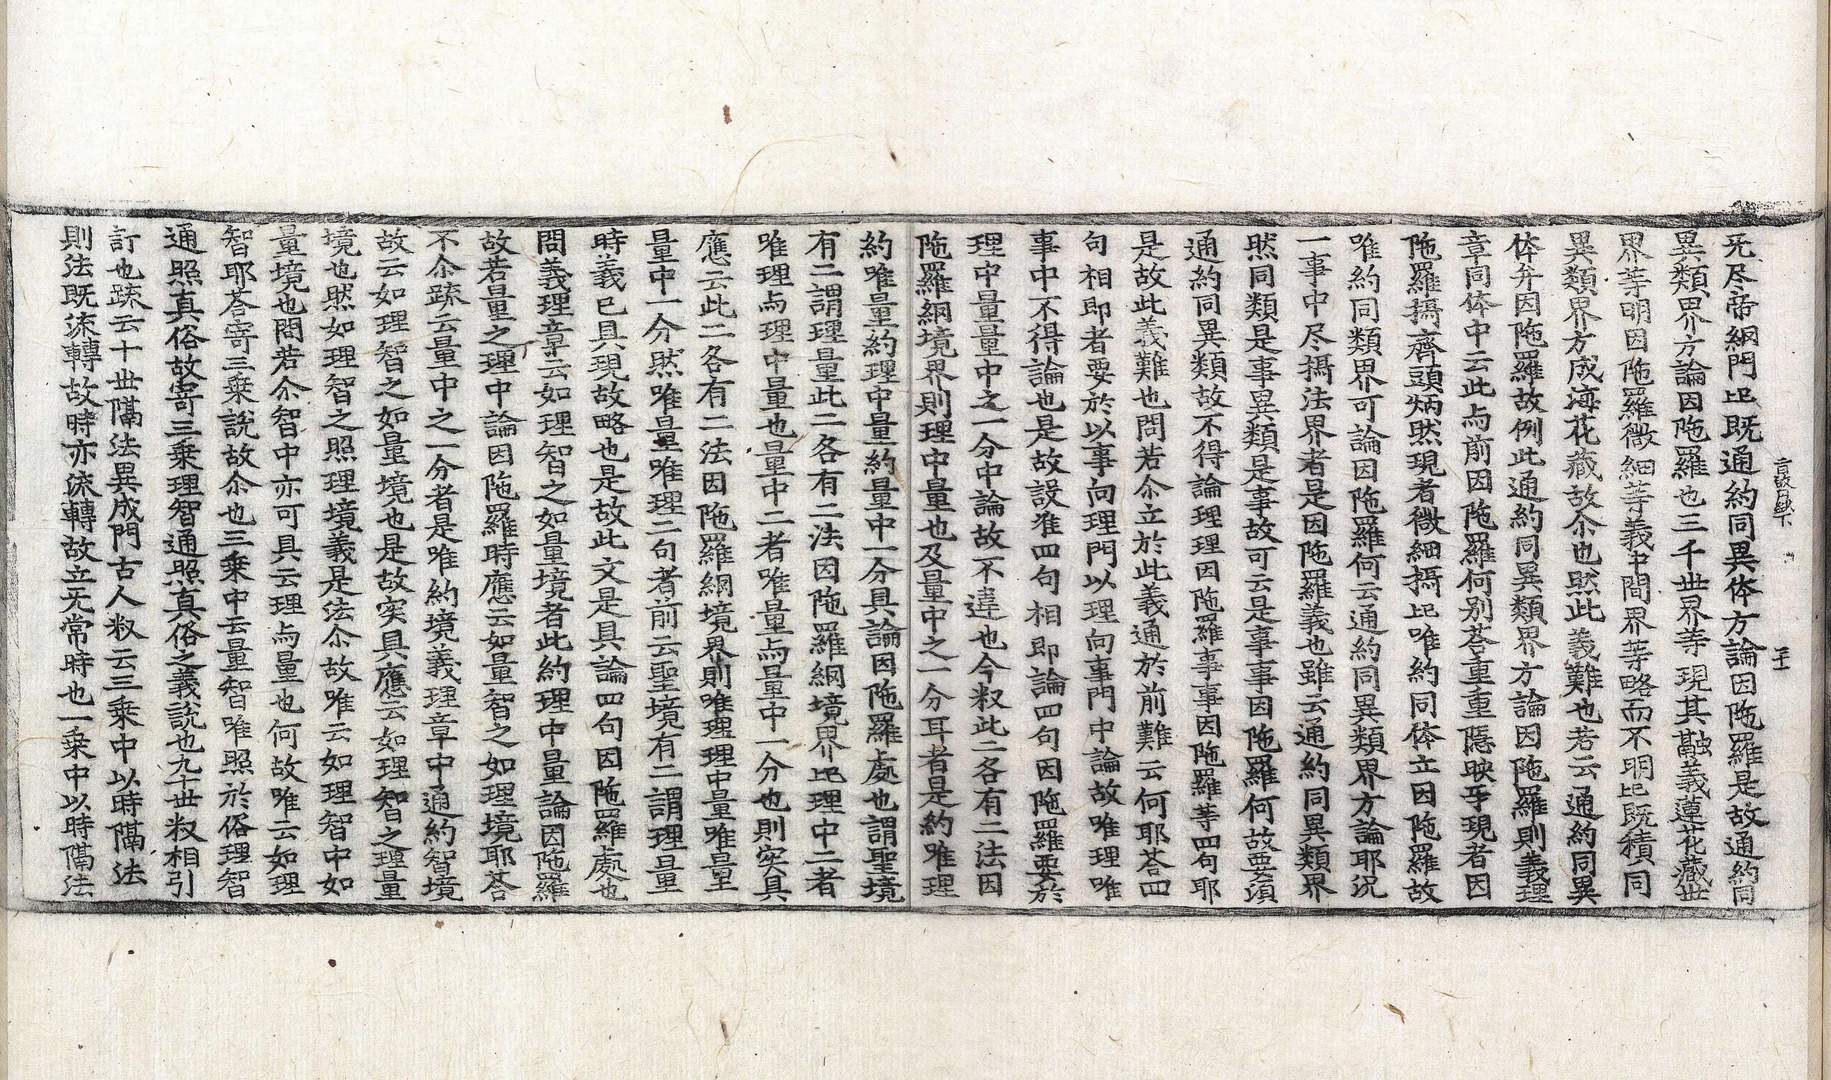 无尽帝網門此既通約同異体方論因陁羅是故通約同
異類界方論因陁羅也三千世界等現其融義蓮花藏世
界等明因陁羅微細等義中間界等略而不明此既積同
異類界方成海花藏故尒也然此義難也若云通約同異
体弁因陁羅故例此通約同異類界方論因陁羅則義理
章同体中云此与前因陁羅何別荅重重隱映互現者因
陁羅攝齊頭炳然現者微細攝此唯約同体立因陁羅故
唯約同類界可論因陁羅何云通約同異類界方論耶況
一事中尽攝法界者是因陁羅義也雖云通約同異類界
然同類是事異類是事故可云是事事因陁羅何故要須
通約同異類故不得論理理因陁羅事事因陁羅等四句耶
是故此義難也問若尒立於此義通於前難云何耶荅四
句相即者要於以事向理門以理向事門中論故唯理唯
事中不得論也是故設准四句相即論四句因陁羅要於
理中量量中之一分中論故不違也今䉼此二各有二法因
陁羅網境界則理中量也及量中之一分耳者是約唯理
約唯量約理中量約量中一分具論因陁羅處也謂聖境
有二謂理量此二各有二法因陁羅網境界此理中二者
唯理与理中量也量中二者唯量与量中一分也則実具
應云此二各有二法因陁羅網境界則唯理理中量唯量
量中一分然唯量唯理二句者前云聖境有二謂理量
時義已具現故略也是故此文是具論四句因陁羅處也
問義理章云如理智之如量境者此約理中量論因陁羅
故若量之理中論因陁羅時應云如量智之如理境耶荅
不尒疏云量中之一分者是唯約境義理章中通約智境
故云如理智之如量境也是故実具應云如理智之理量
境也然如理智之照理境義是法尒故唯云如理智中如
量境也問若尒智中亦可具云理与量也何故唯云如理
智耶荅寄三乗說故尒也三乗中云量智唯照於俗理智
通照真俗故寄三乗理智通照真俗之義說也九十世䉼相引
訂也疏云十世隔法異成門古人䉼云三乗中以時隔法
則法既流轉故時亦流轉故立无常時也一乗中以時隔法